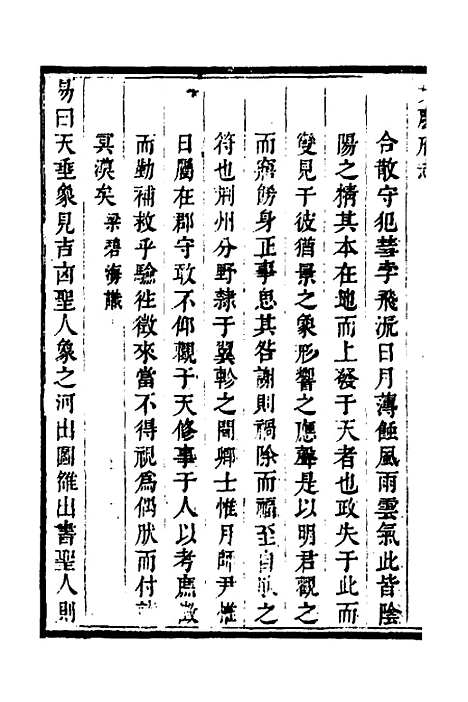 合散守犯彗孛飛流日月薄蝕風雨雲氣此皆陰
陽之精其本在地而上發于天者也政失于此而
變見于彼猶景之象形響之應聲是以明君觀之
而寤飭身正事思其咎謝則禍除而福至自然之
符也荆州分野隸于翼軫之間卿士惟月師尹惟
日屬在郡守敢不仰觀于天修事于人以考庶徵
而勤補救乎驗往徵來當不得視爲偶狀而付諸
冥漠矣 梁碧海識
易曰天垂象見吉凶聖人象之河出圖雒出書聖人則